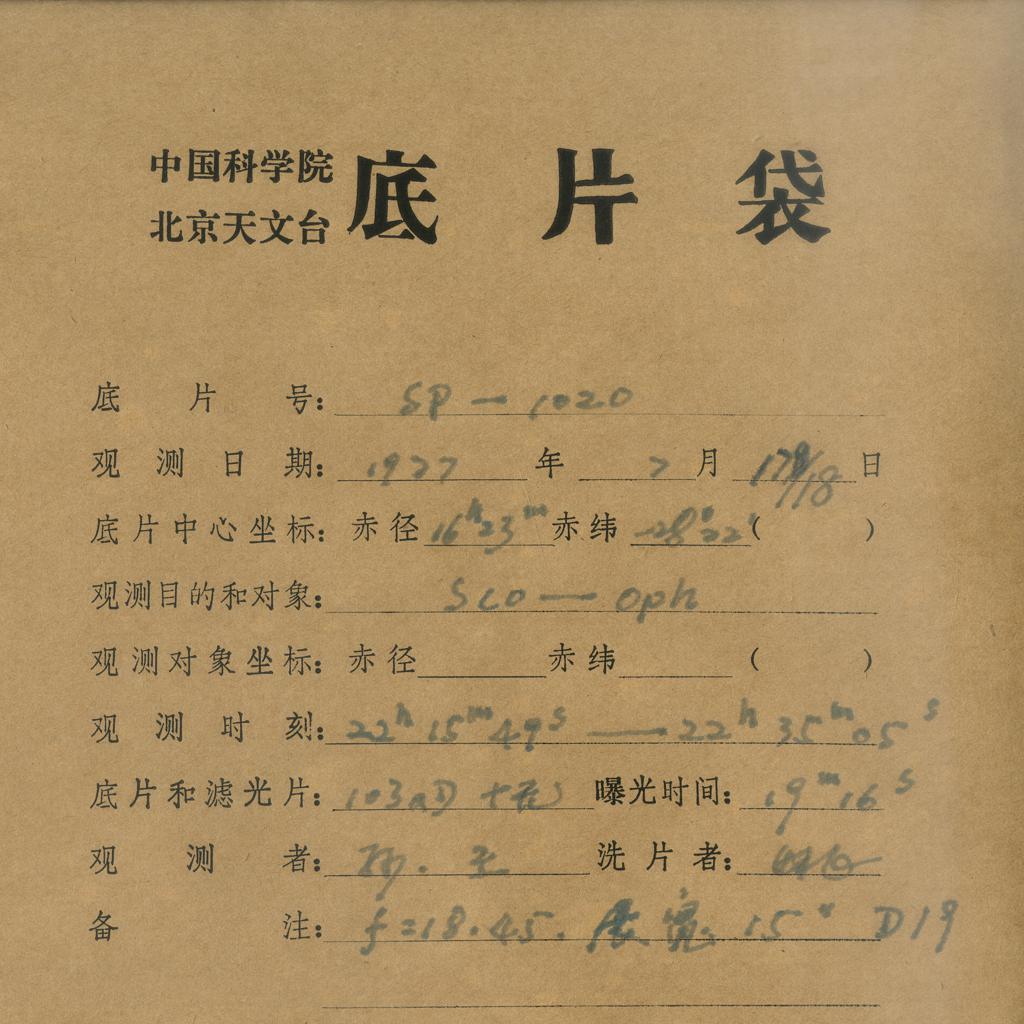 中国科学院
北京天文台
底片袋
底片号: SP—1020
观测日期: 1977年7月17/18日
底片中心坐标: 赤径 16ʰ23ᵐ 赤纬 -28°22′ ( )
观测目的和对象: Sco—oph
观测对象坐标: 赤径 赤纬 ( )
观测时刻: 22ʰ15ᵐ49ˢ——22ʰ35ᵐ05ˢ
底片和滤光片: 103aD + 曝光时间: 19ᵐ16ˢ
观测者: 孙. 王 洗片者:
备注: f=18.45. 展宽 15" D19